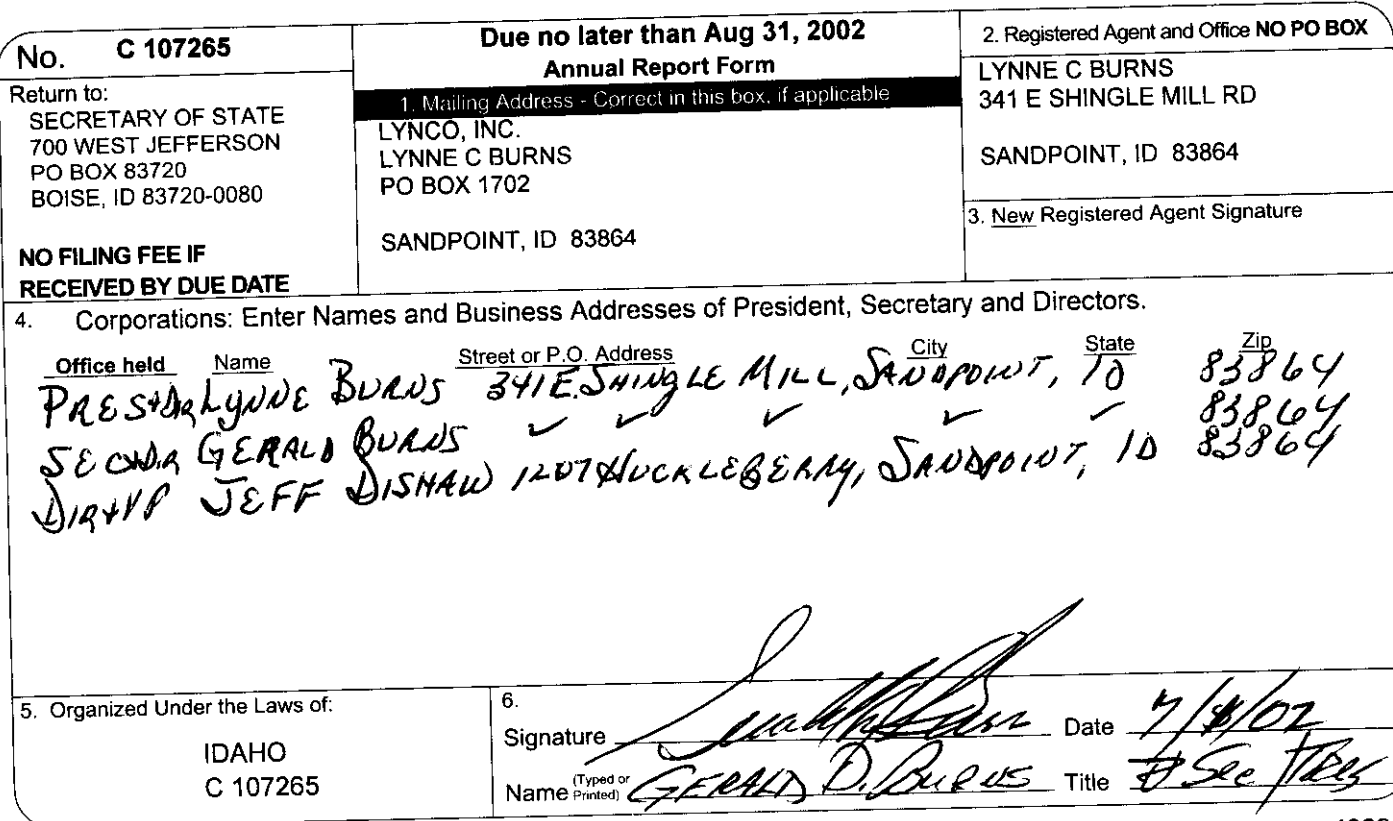 No. C 107265
Return to:
SECRETARY OF STATE
700 WEST JEFFERSON
PO BOX 83720
BOISE, ID 83720-0080
NO FILING FEE IF
RECEIVED BY DUE DATE
Due no later than Aug 31, 2002
Annual Report Form
1. Mailing Address - Correct in this box, if applicable
LYNCO, INC.
LYNNE C BURNS
PO BOX 1702
SANDPOINT, ID 83864
2. Registered Agent and Office NO PO BOX
LYNNE C BURNS
341 E SHINGLE MILL RD
SANDPOINT, ID 83864
3. New Registered Agent Signature
4. Corporations: Enter Names and Business Addresses of President, Secretary and Directors.
Office held Name Street or P.O. Address City State Zip
PRES+DR LYNNE BURNS 341 E. SHINGLE MILL, SANDPOINT, ID 83864
GERALD BURNS ✓ ✓ ✓ ✓ ✓ 83864
DIR+VP JEFF DISHAW 1207 HUCKLEBERRY, SANDPOINT, ID 83864
5. Organized Under the Laws of:
IDAHO
C 107265
6.
Signature Date 7/8/02
Name (Typed or Printed) GERALD D. BURNS Title Sec Tres